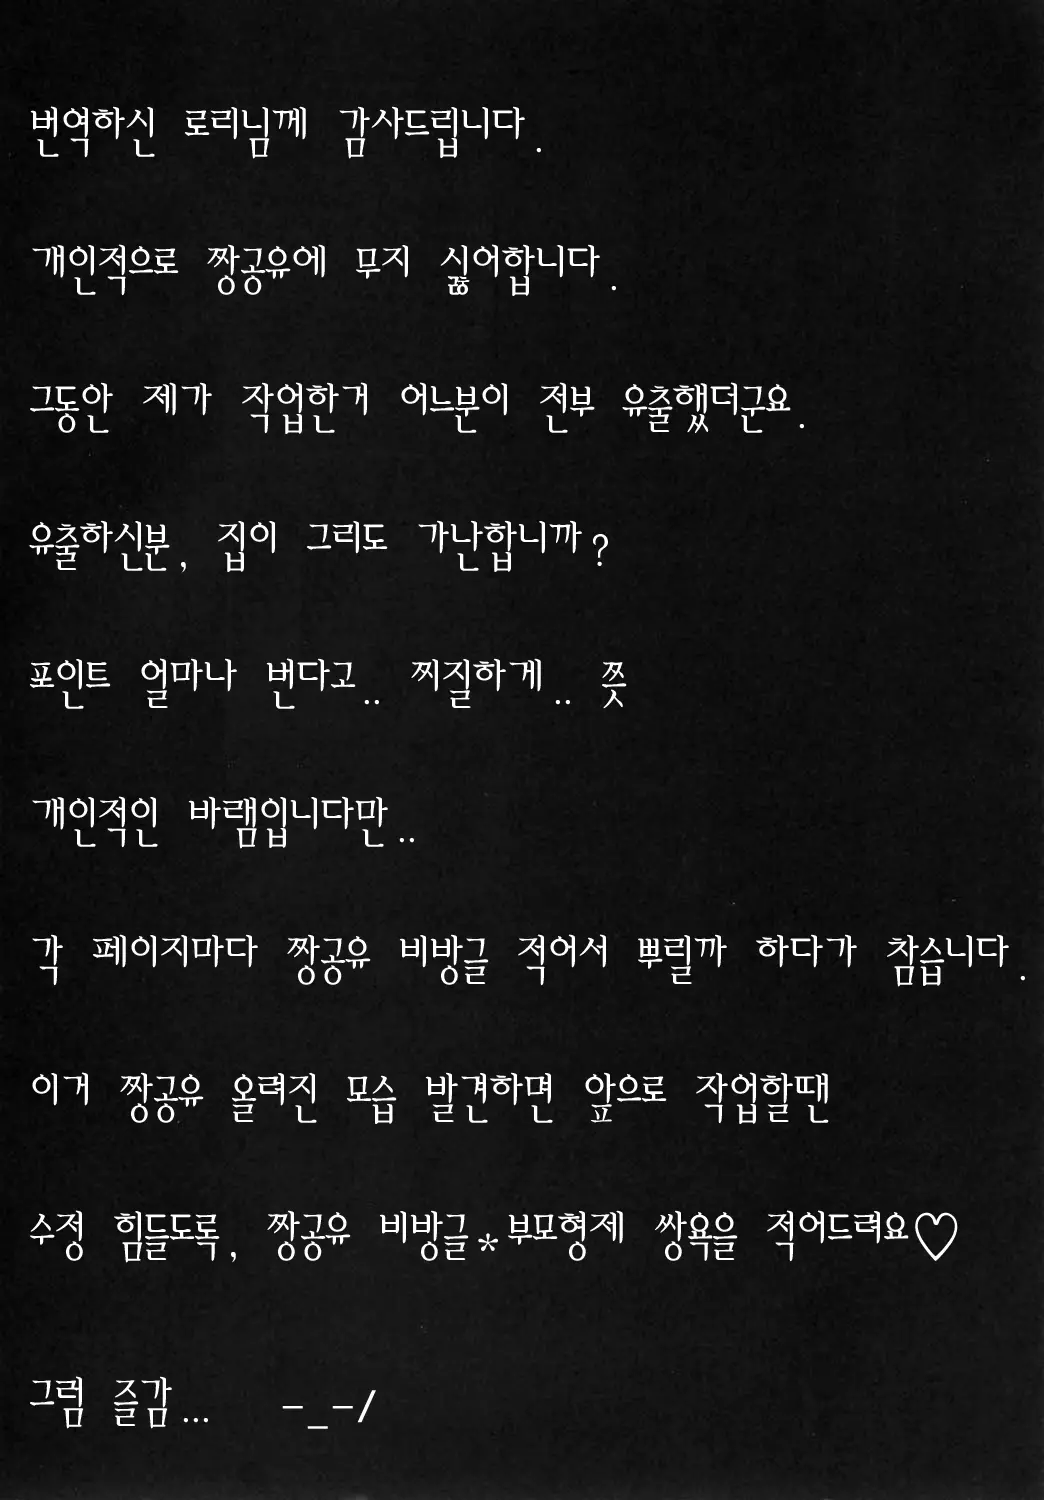 번역하신 로리님께 감사드립니다.
개인적으로 짱공유에 무지 싫어합니다.
그동안 제가 작업한거 어느분이 전부 유출했더군요.
유출하신분, 집이 그리도 가난합니까?
포인트 얼마나 번다고.. 찌질하게.. 쯧
개인적인 바램입니다만..
각 페이지마다 짱공유 비방글 적어서 뿌릴까 하다가 참습니다.
이거 짱공유 올려진 모습 발견하면 앞으로 작업할땐
수정 힘들도록, 짱공유 비방글*부모형제 쌍욕을 적어드려요♡
그럼 즐감... -_-/